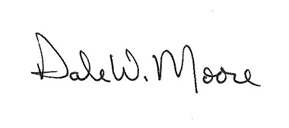 Dale W. Moore